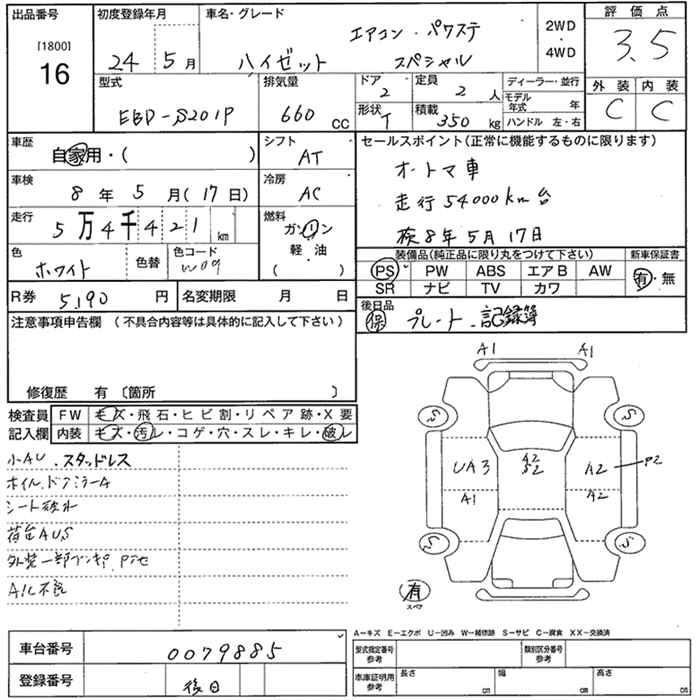 出品番号 初度登録年月 車名・グレード 評価点
[1800] エアコン・パワステ 2WD
16 24 5月 ハイゼット スペシャル 4WD 3.5
型式 排気量 ドア 2 定員 2 人 ディーラー・並行 外装 内装
EBD-S201P 660 CC 形状 T 積載 350 kg モデル年式 年 C C
ハンドル 左・右
車歴 シフト セールスポイント(正常に機能するものに限ります)
自家用・( ) AT オートマ車
車検 冷房
8年 5月(17日) AC 走行54000km台
走行 燃料
5万4千421km ガソリン 検8年5月17日
色 色替 色コード 軽油 装備品(純正品に限り丸をつけて下さい) 新車保証書
ホワイト W09 ( ) PS PW ABS エアB AW 有・無
SR ナビ TV カワ
R券 5,190 円 名変期限 月 日 後日品
注意事項申告欄 (不具合内容等は具体的に記入して下さい) 保 プレート・記録簿
A1 A1
修復歴 有〔箇所 〕
検査員 FW キズ・飛石・ヒビ割・リペア跡・X要 S S
記入欄 内装 キズ・汚レ・コゲ・穴・スレ・キレ・破レ
小AU・スタッドレス UA3 A2 S2 A2 P2
ホイル、ドアミラーA A1 A2
シート破れ
荷台AUS S S
外装一部
A/L不良
有
スペア
A−キズ E−エクボ U−凹み W−補修跡 S−サビ C−腐食 XX−交換済
車台番号 0079885 型式指定番号 参考 類別区分番号 参考
登録番号 後日 車庫証明用 参考 長さ cm 幅 cm 高さ cm